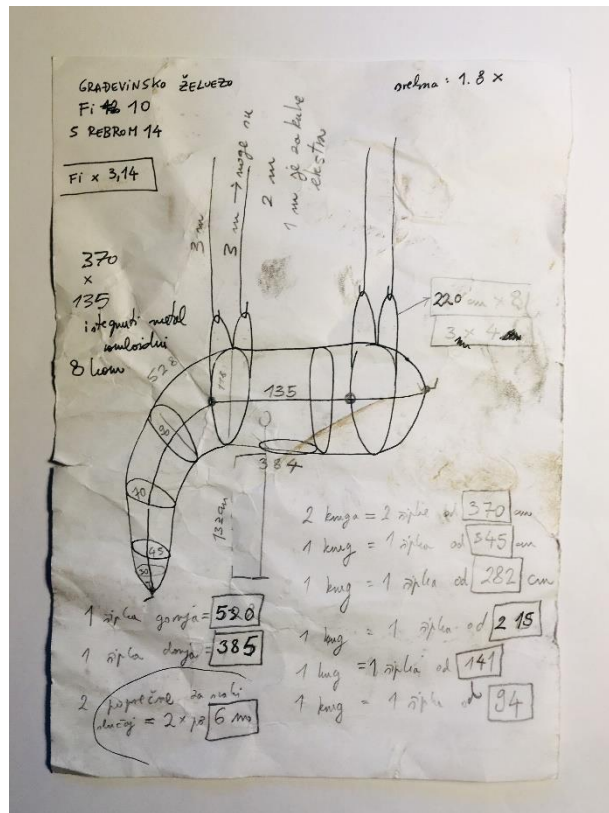 GRAĐEVINSKO ŽELJEZO
Fi 10
S REBROM 14
Fi x 3,14
srebrna = 1.8 x
3 m
3 m → noge su
2 m
1 m je za kuke
ekstra
370
x
135
istegnuti metal
romboidni
8 kom
220 cm x 8
3 m x 4
528
118
135
90
70
45
30
384
132 cm
2 kruga = 2 šipke od 370 cm
1 krug = 1 šipka od 345 cm
1 krug = 1 šipka od 282 cm
1 krug = 1 šipka od 215
1 krug = 1 šipka od 141
1 krug = 1 šipka od 94
1 šipka gornja = 520
1 šipka donja = 385
2 poprečne za svaki
slučaj = 2 x po 6 m